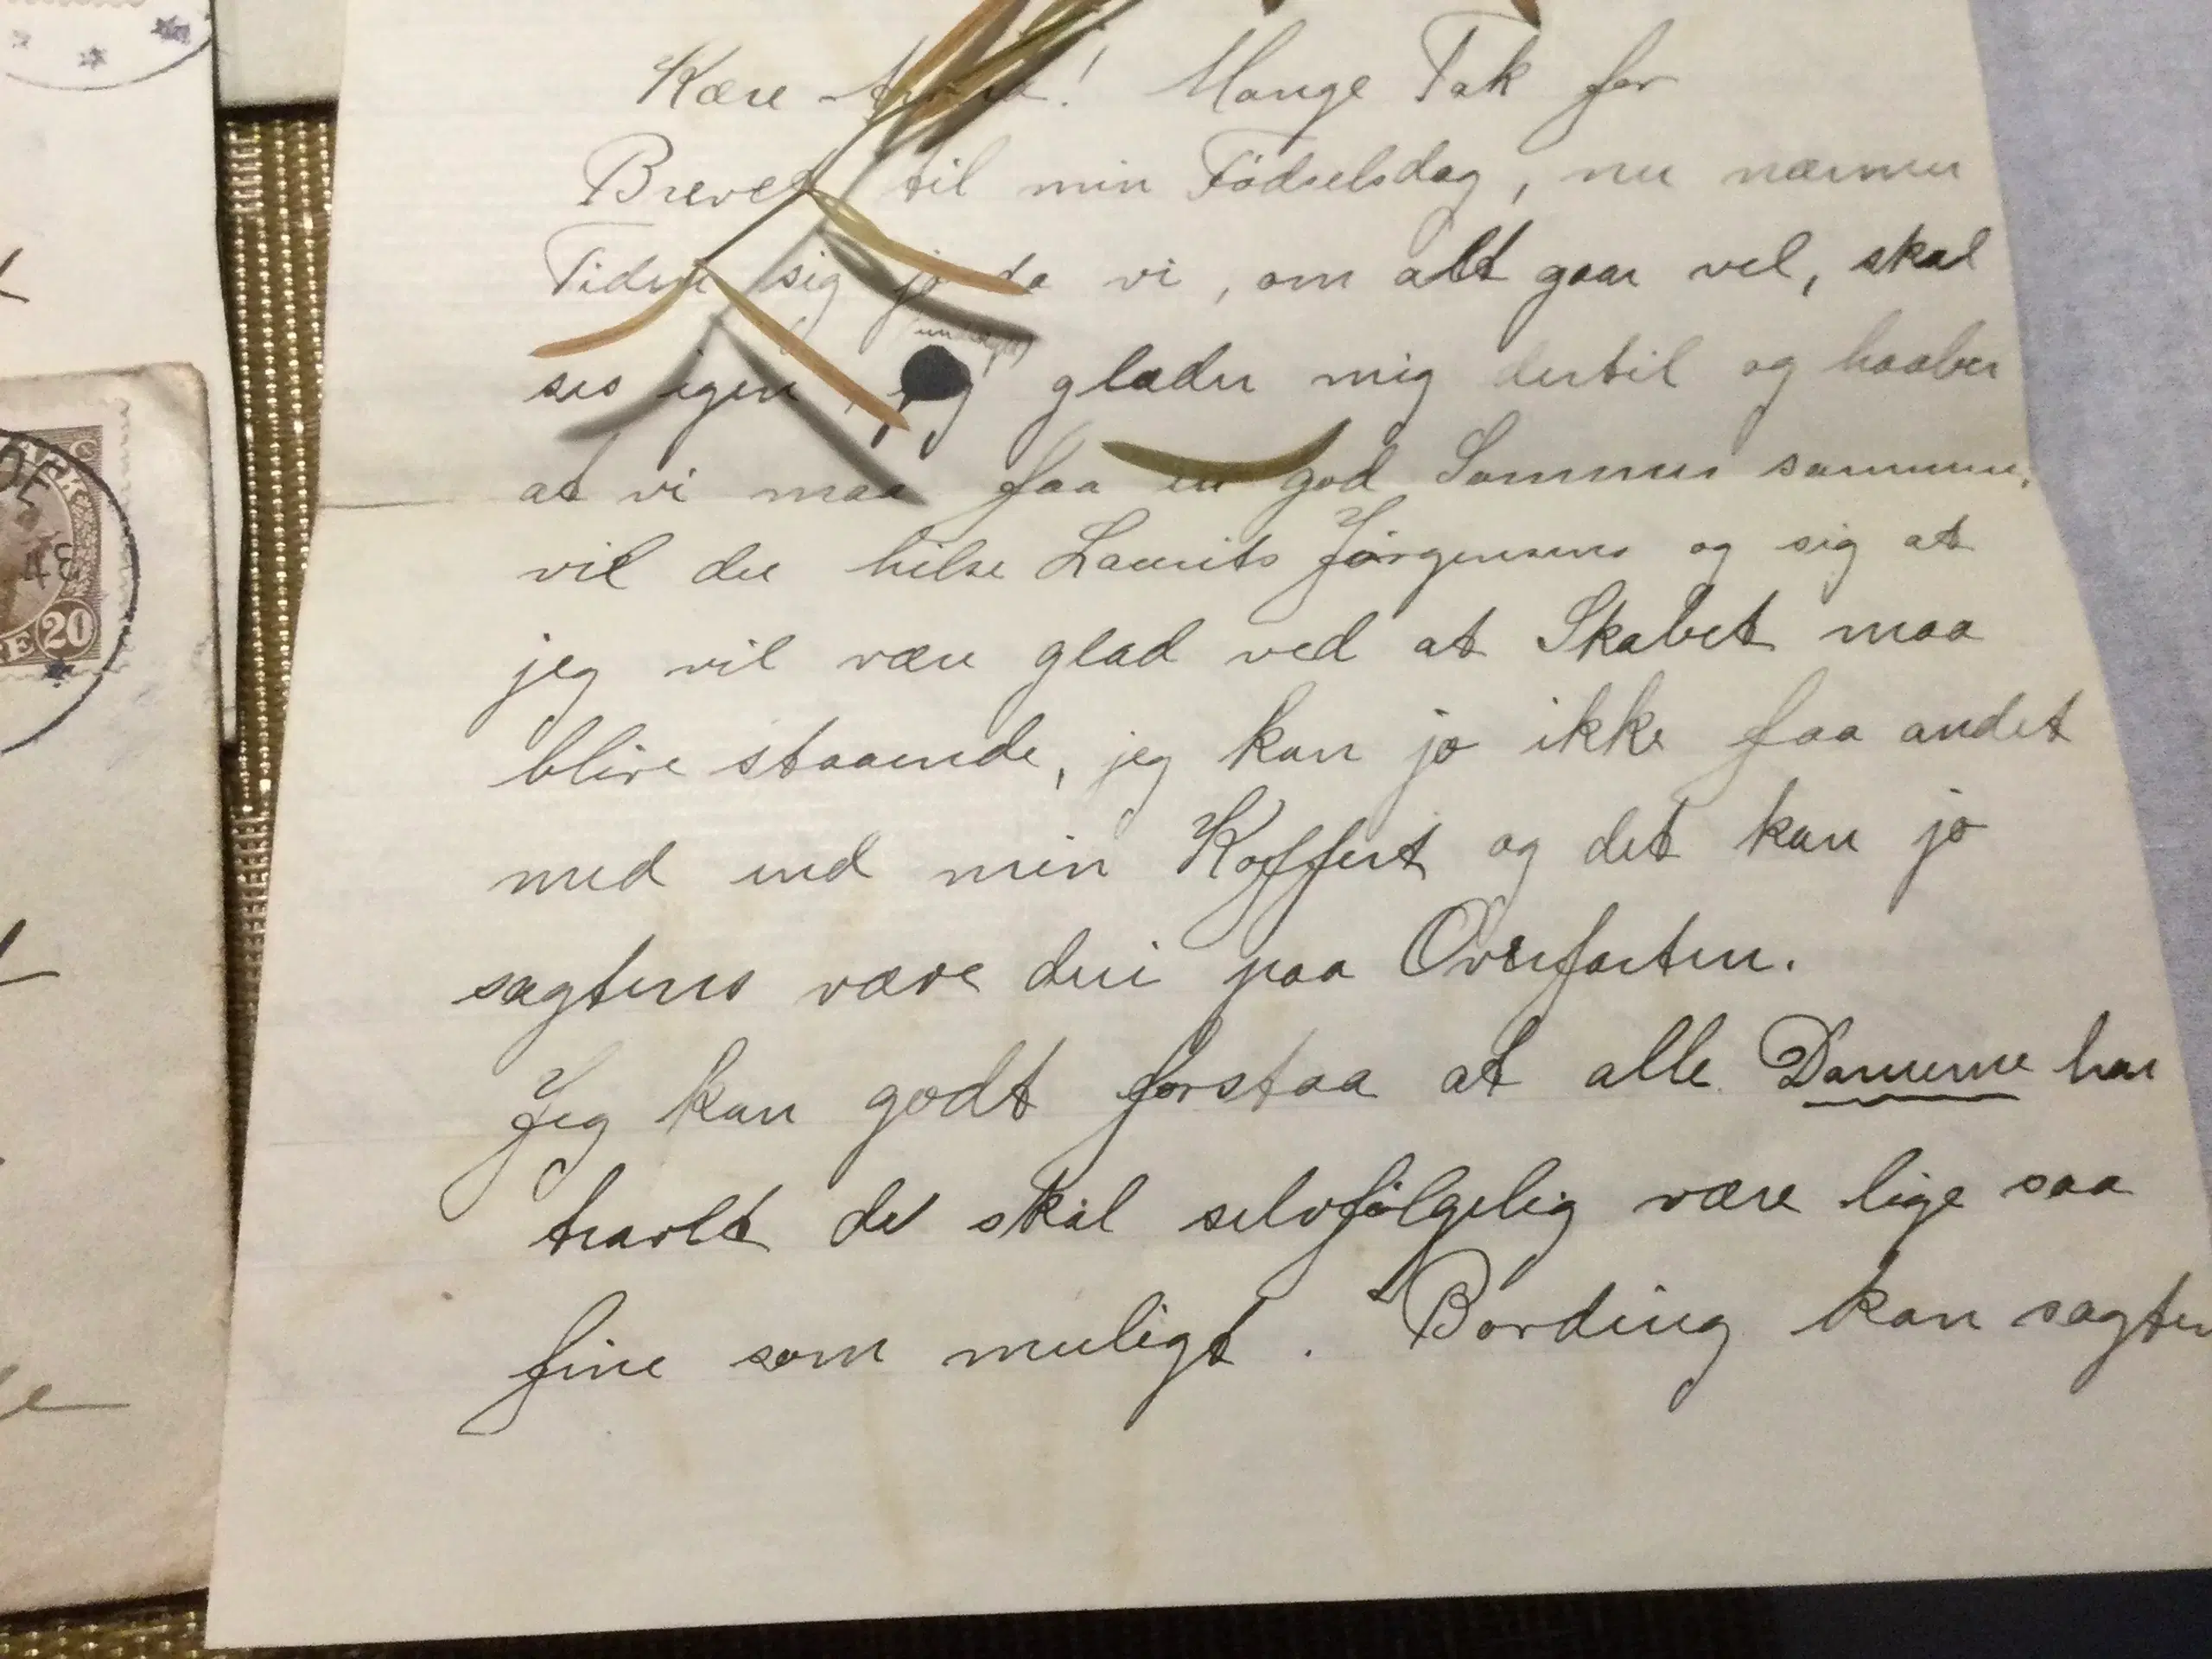 Kære ! Mange Tak for
Brevet til min Födselsdag, nu nærmer
Tiden sig jo da vi, om alt gaar vel, skal
ses igen, jeg glæder mig dertil og haaber
at vi maa faa en god Sommer sammen,
vil du hilse Laurits Jörgensens og sig at
jeg vil være glad ved at Skabet maa
blive staaende, jeg kan jo ikke faa andet
med end min Koffert og det kan jo
sagtens være deri paa Overfarten.
Jeg kan godt forstaa at alle Damerne har
travlt de skal selvfölgelig være lige saa
fine som muligt. Bording kan sagten
20